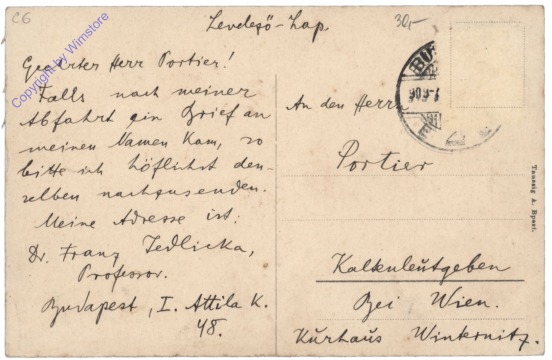 C6
Levelező-Lap
30,-
Geehrter Herr Portier!
Falls nach meiner
Abfahrt ein Brief an
meinen Namen kam, so
bitte ich höflichst den-
selben nachzusenden.
Meine Adresse ist:
Dr. Franz Jedlicka,
Professor.
Budapest, I. Attila K.
48.
An den Herrn
Portier
Kaltenleutgeben
Bei Wien.
Kurhaus Winternitz.
Taussig A. Bpest.
BU
Copyright by Wimstore